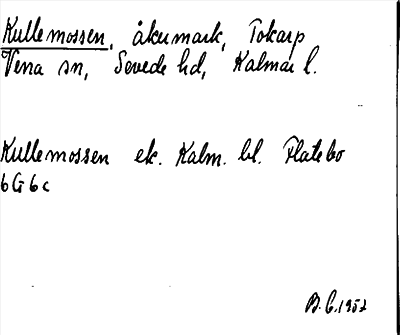 Kullemossen, åkermark, Tokarp
Vena sn, Sevede hd, Kalmar l.
Kullemossen ek. Kalm. bl. Flatebo
6G6c
B.C. 1952